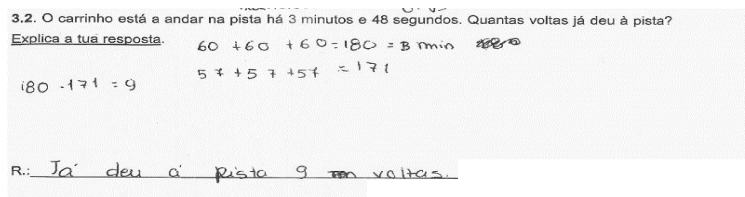 3.2. O carrinho está a andar na pista há 3 minutos e 48 segundos. Quantas voltas já deu à pista?
Explica a tua resposta.
60 + 60 + 60 = 180 = 3 min
57 + 57 + 57 = 171
180 - 171 = 9
R.: Já deu á pista 9 voltas.